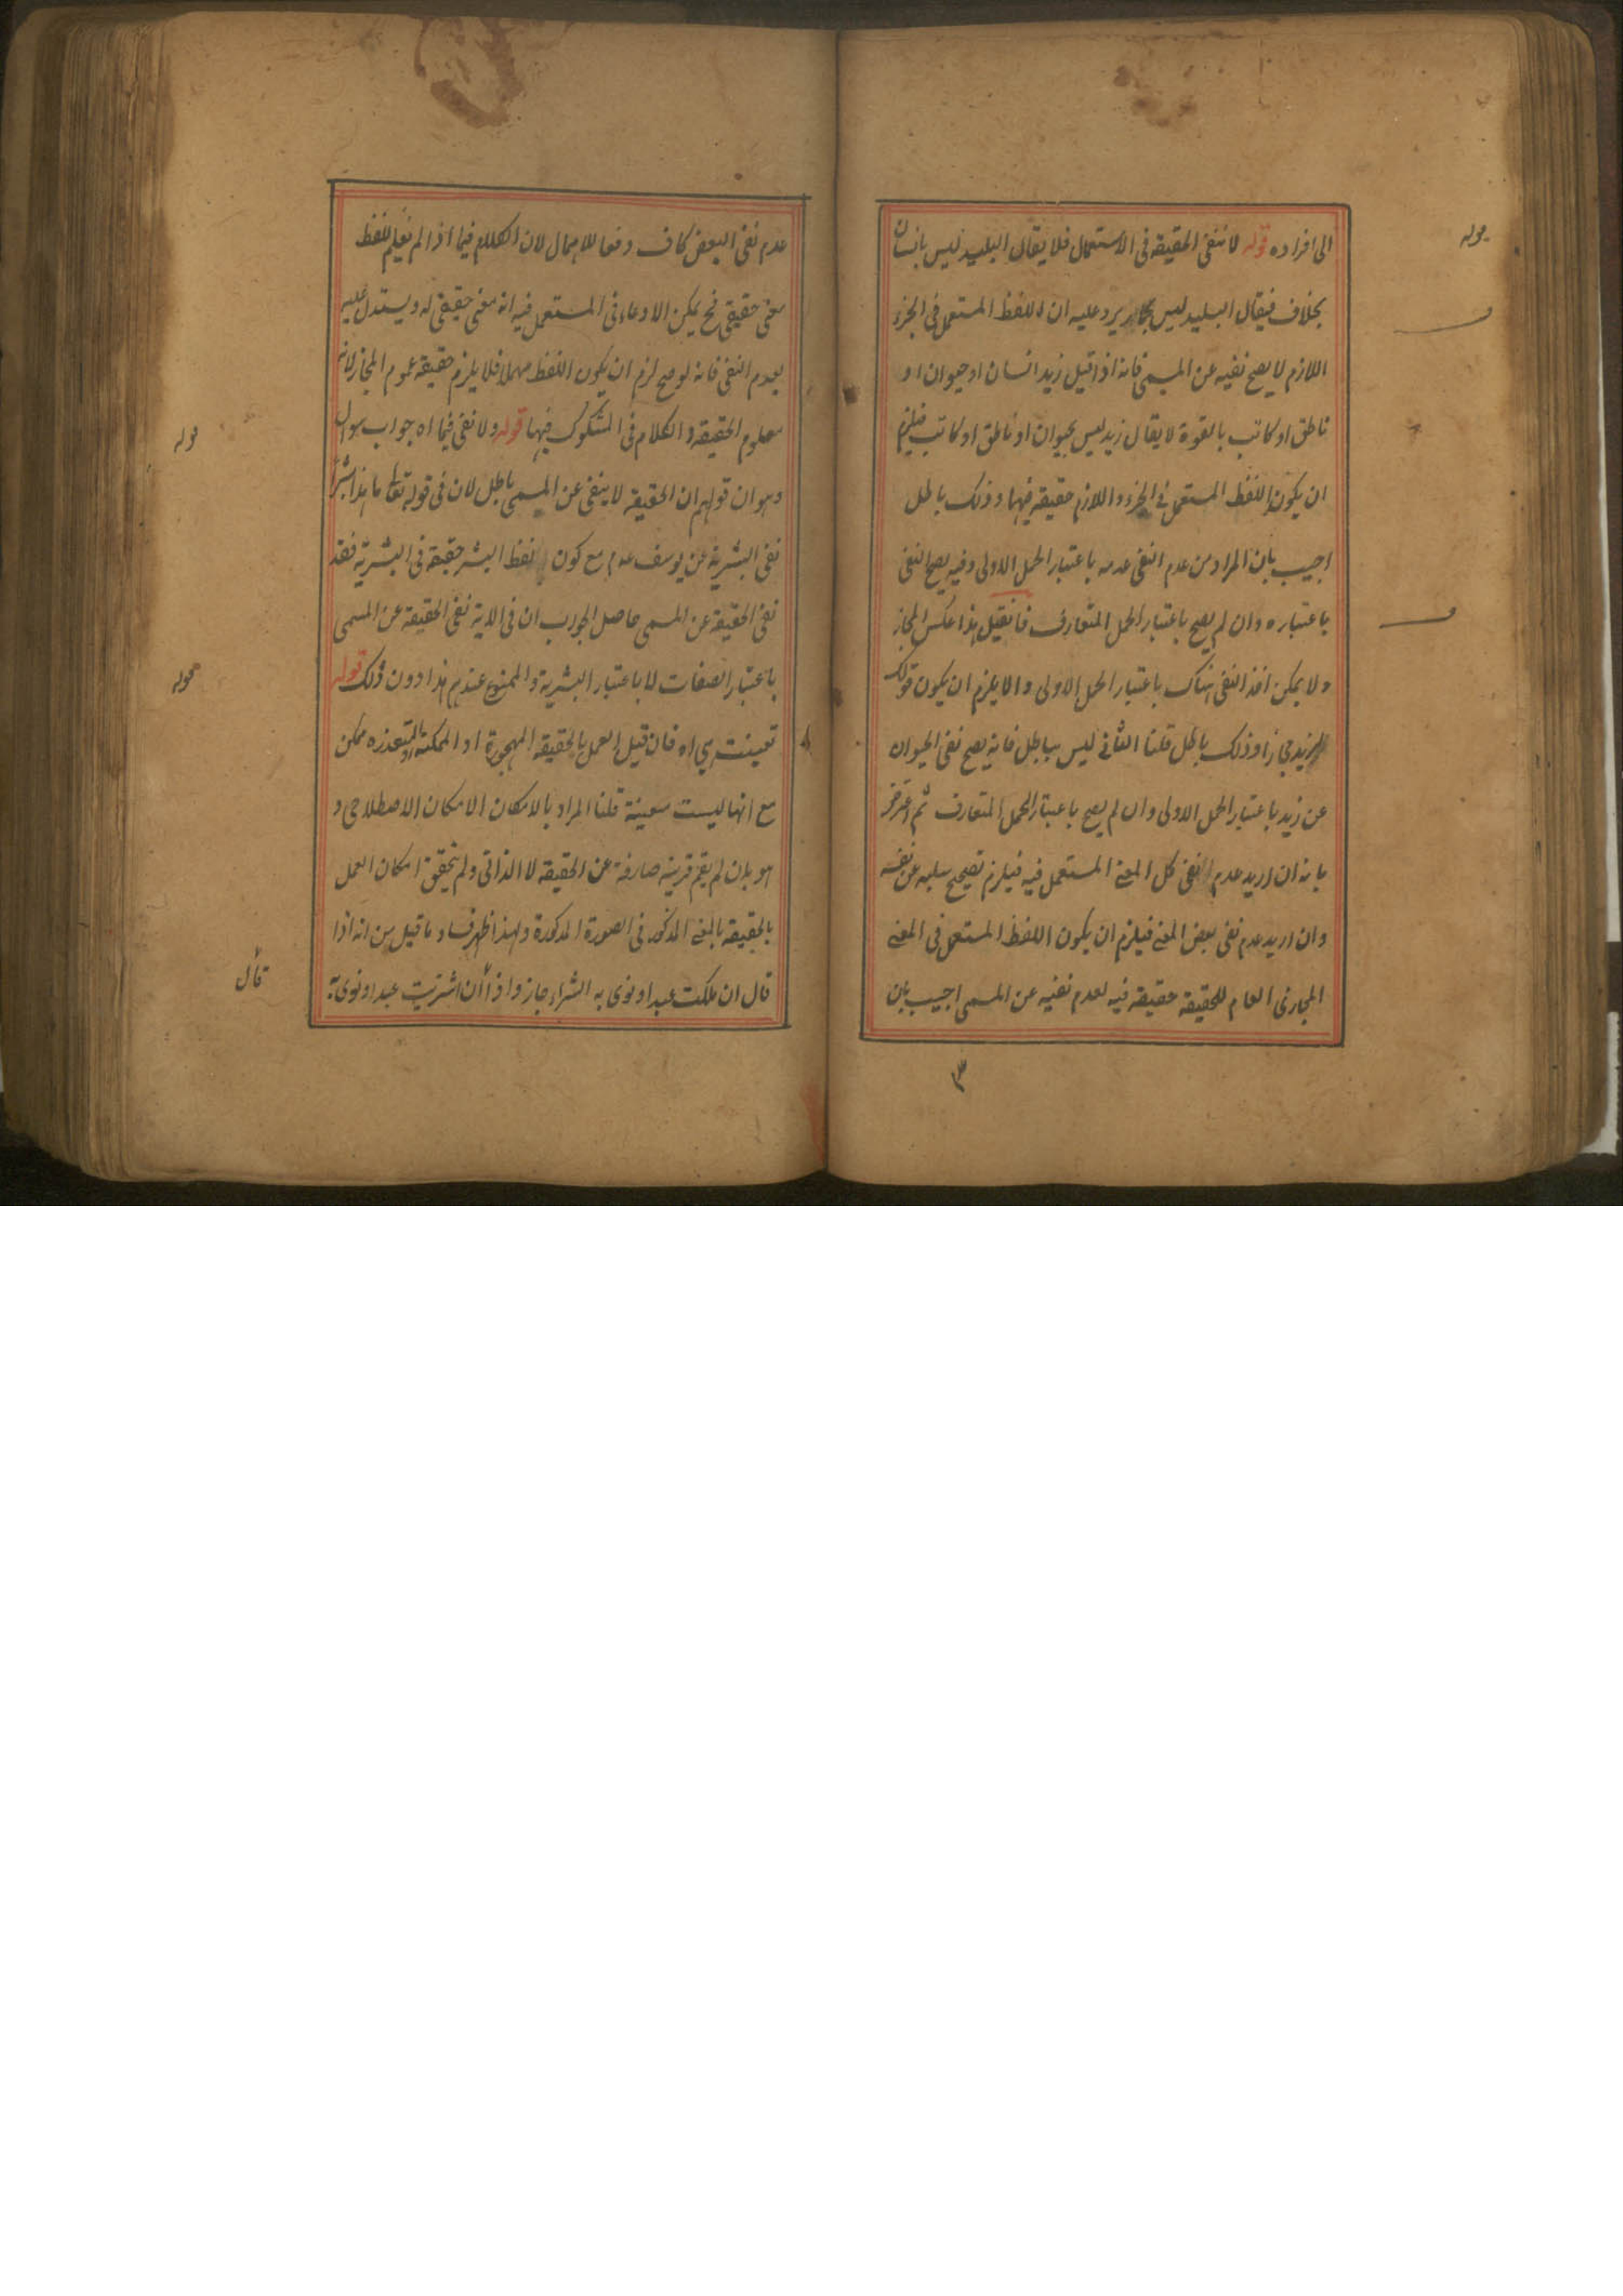 الى افراده قوله لا تنفى الحقيقة فى الاستعمال فلا يقال البليد ليس بانسان
بخلاف فيقال البليد ليس بحمار يرد عليه ان اللفظ المستعمل فى الجزء
اللازم لا يصح نفيه عن المسمى فانه اذا قيل زيد انسان او حيوان او
ناطق او كاتب بالقوة لا يقال زيد ليس بحيوان او ناطق او كاتب فيلزم
ان يكون اللفظ المستعمل فى الجزء و اللازم حقيقة فيهما وذلك باطل
اجيب بان المراد من عدم النفى عدمه باعتبار الحمل الاولى وفيه يصح النفى
باعتباره وان لم يصح باعتبار الحمل المتعارف فان قيل هذا عكس المجاز
ولا يمكن اخذ النفى هناك باعتبار الحمل الاولى والا يلزم ان يكون قولك
زيد مجازا وذلك باطل قلنا الثانى ليس بباطل فانه يصح نفى الحيوان
عن زيد باعتبار الحمل الاولى وان لم يصح باعتبار الحمل المتعارف ثم اعترض
بانه ان اريد عدم النفى كل المعنى المستعمل فيه فيلزم تصحيح سلبه عن نفسه
وان اريد عدم نفى بعض المعنى فيلزم ان يكون اللفظ المستعمل فى المعنى
المجازى العام للحقيقة حقيقة فيه لعدم نفيه عن المسمى اجيب بان
٣
قوله
عدم نفى البعض كاف دفعا للاهمال لان الكلام فيما اذا لم نعلم للفظ
معنى حقيقى فح يمكن الادعاء فى المستعمل فيه انه معنى حقيقى له ويستدل عليه
بعدم النفى فانه لو صح لزم ان يكون اللفظ مهملا فلا يلزم حقيقة عموم المجاز لانه
معلوم الحقيقة والكلام فى المشكوك فيها قوله ولا نفى فيما اه جواب سوال
وهو ان قولهم ان الحقيقة لا ينفى عن المسمى باطل لان فى قوله تعا ما هذا بشرا
نفى البشرية عن يوسف عدم مع كون لفظ البشر حقيقة فى البشرية فقد
نفى الحقيقة عن المسمى حاصل الجواب ان فى الاية نفى الحقيقة عن المسمى
باعتبار الصفات لا باعتبار البشرية والممنوع عندهم هذا دون ذلك قوله
تعينت هي اه فان قيل العمل بالحقيقة المهجورة او الممكنة المتعذره ممكن
مع انها ليست معينة قلنا المراد بالامكان الامكان الاصطلاحى و
هو بان لم يقم قرينة صارفة عن الحقيقة لا الذاتى ولم يتحقق امكان العمل
بالحقيقة بالمعنى المذكور فى الصورة المذكورة ولهذا ظهر فساد ما قيل من انه اذا
قال ان ملكت عبدا ونوى به الشراء جاز واذا ان اشتريت عبدا ونوى به
قوله
قوله
قال